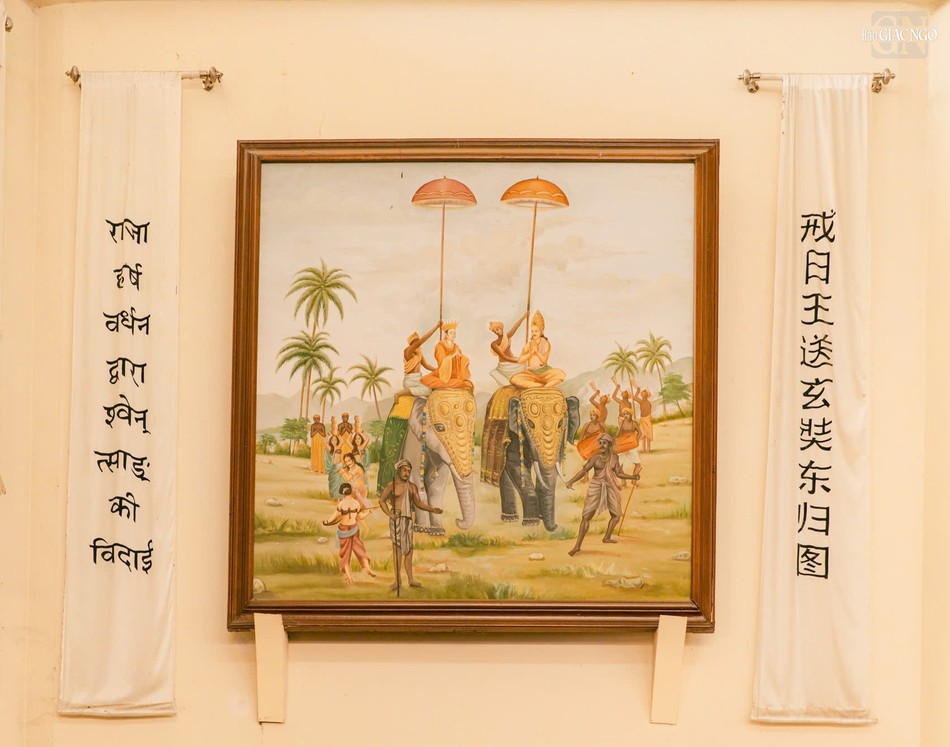 राजा
हर्ष
वर्धन
द्वारा
श्वेन्
त्साङ्
की
विदाई
戒日王送玄奘东归图
GIÁC NGỘ
GN